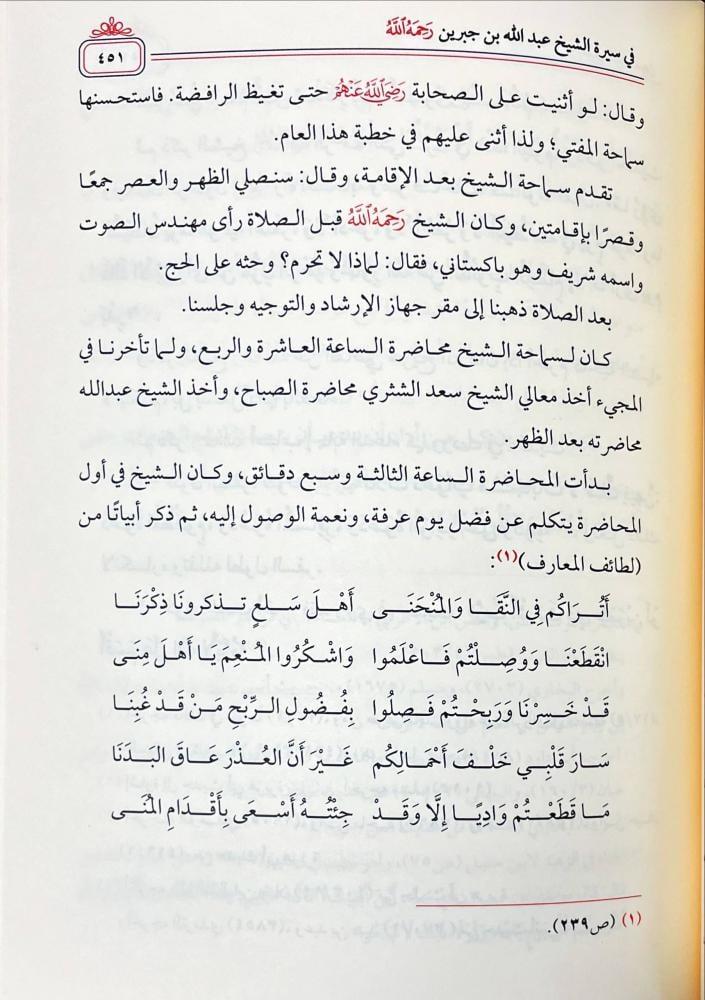 في سيرة الشيخ عبد الله بن جبرين رَحِمَهُ ٱللَّهُ
٤٥١
وقال: لو أثنيت على الصحابة رَضِيَ ٱللَّهُ عَنْهُمْ حتى تغيظ الرافضة. فاستحسنها
سماحة المفتي؛ ولذا أثنى عليهم في خطبة هذا العام.
تقدم سماحة الشيخ بعد الإقامة، وقال: سنصلي الظهر والعصر جمعًا
وقصرًا بإقامتين، وكان الشيخ رَحِمَهُ ٱللَّهُ قبل الصلاة رأى مهندس الصوت
واسمه شريف وهو باكستاني، فقال: لماذا لا تحرم؟ وحثه على الحج.
بعد الصلاة ذهبنا إلى مقر جهاز الإرشاد والتوجيه وجلسنا.
كان لسماحة الشيخ محاضرة الساعة العاشرة والربع، ولما تأخرنا في
المجيء أخذ معالي الشيخ سعد الشثري محاضرة الصباح، وأخذ الشيخ عبدالله
محاضرته بعد الظهر.
بدأت المحاضرة الساعة الثالثة وسبع دقائق، وكان الشيخ في أول
المحاضرة يتكلم عن فضل يوم عرفة، ونعمة الوصول إليه، ثم ذكر أبياتًا من
(لطائف المعارف)(١):
أَتُرَاكُم فِي النَّقَا وَالمُنْحَنَى أَهْلَ سَلعٍ تذكرونَا ذِكْرَنَا
انْقَطَعْنَا وَوُصِلْتُمْ فَاعْلَمُوا وَاشْكُرُوا المُنْعِمَ يَا أَهْلَ مِنَى
قَدْ خَسِرْنَا وَرَبِحْتُمْ فَصِلُوا بِفُضُولِ الرِّبْحِ مَنْ قَدْ غُبِنَا
سَارَ قَلْبِي خَلْفَ أَحْمَالِكُم غَيْرَ أَنَّ العُذْرَ عَاقَ البَدَنَا
مَا قَطَعْتُمْ وَادِيًا إِلَّا وَقَدْ جِئْتُهُ أَسْعَى بِأَقْدَامِ المُنَى
(١) (ص٢٣٩).